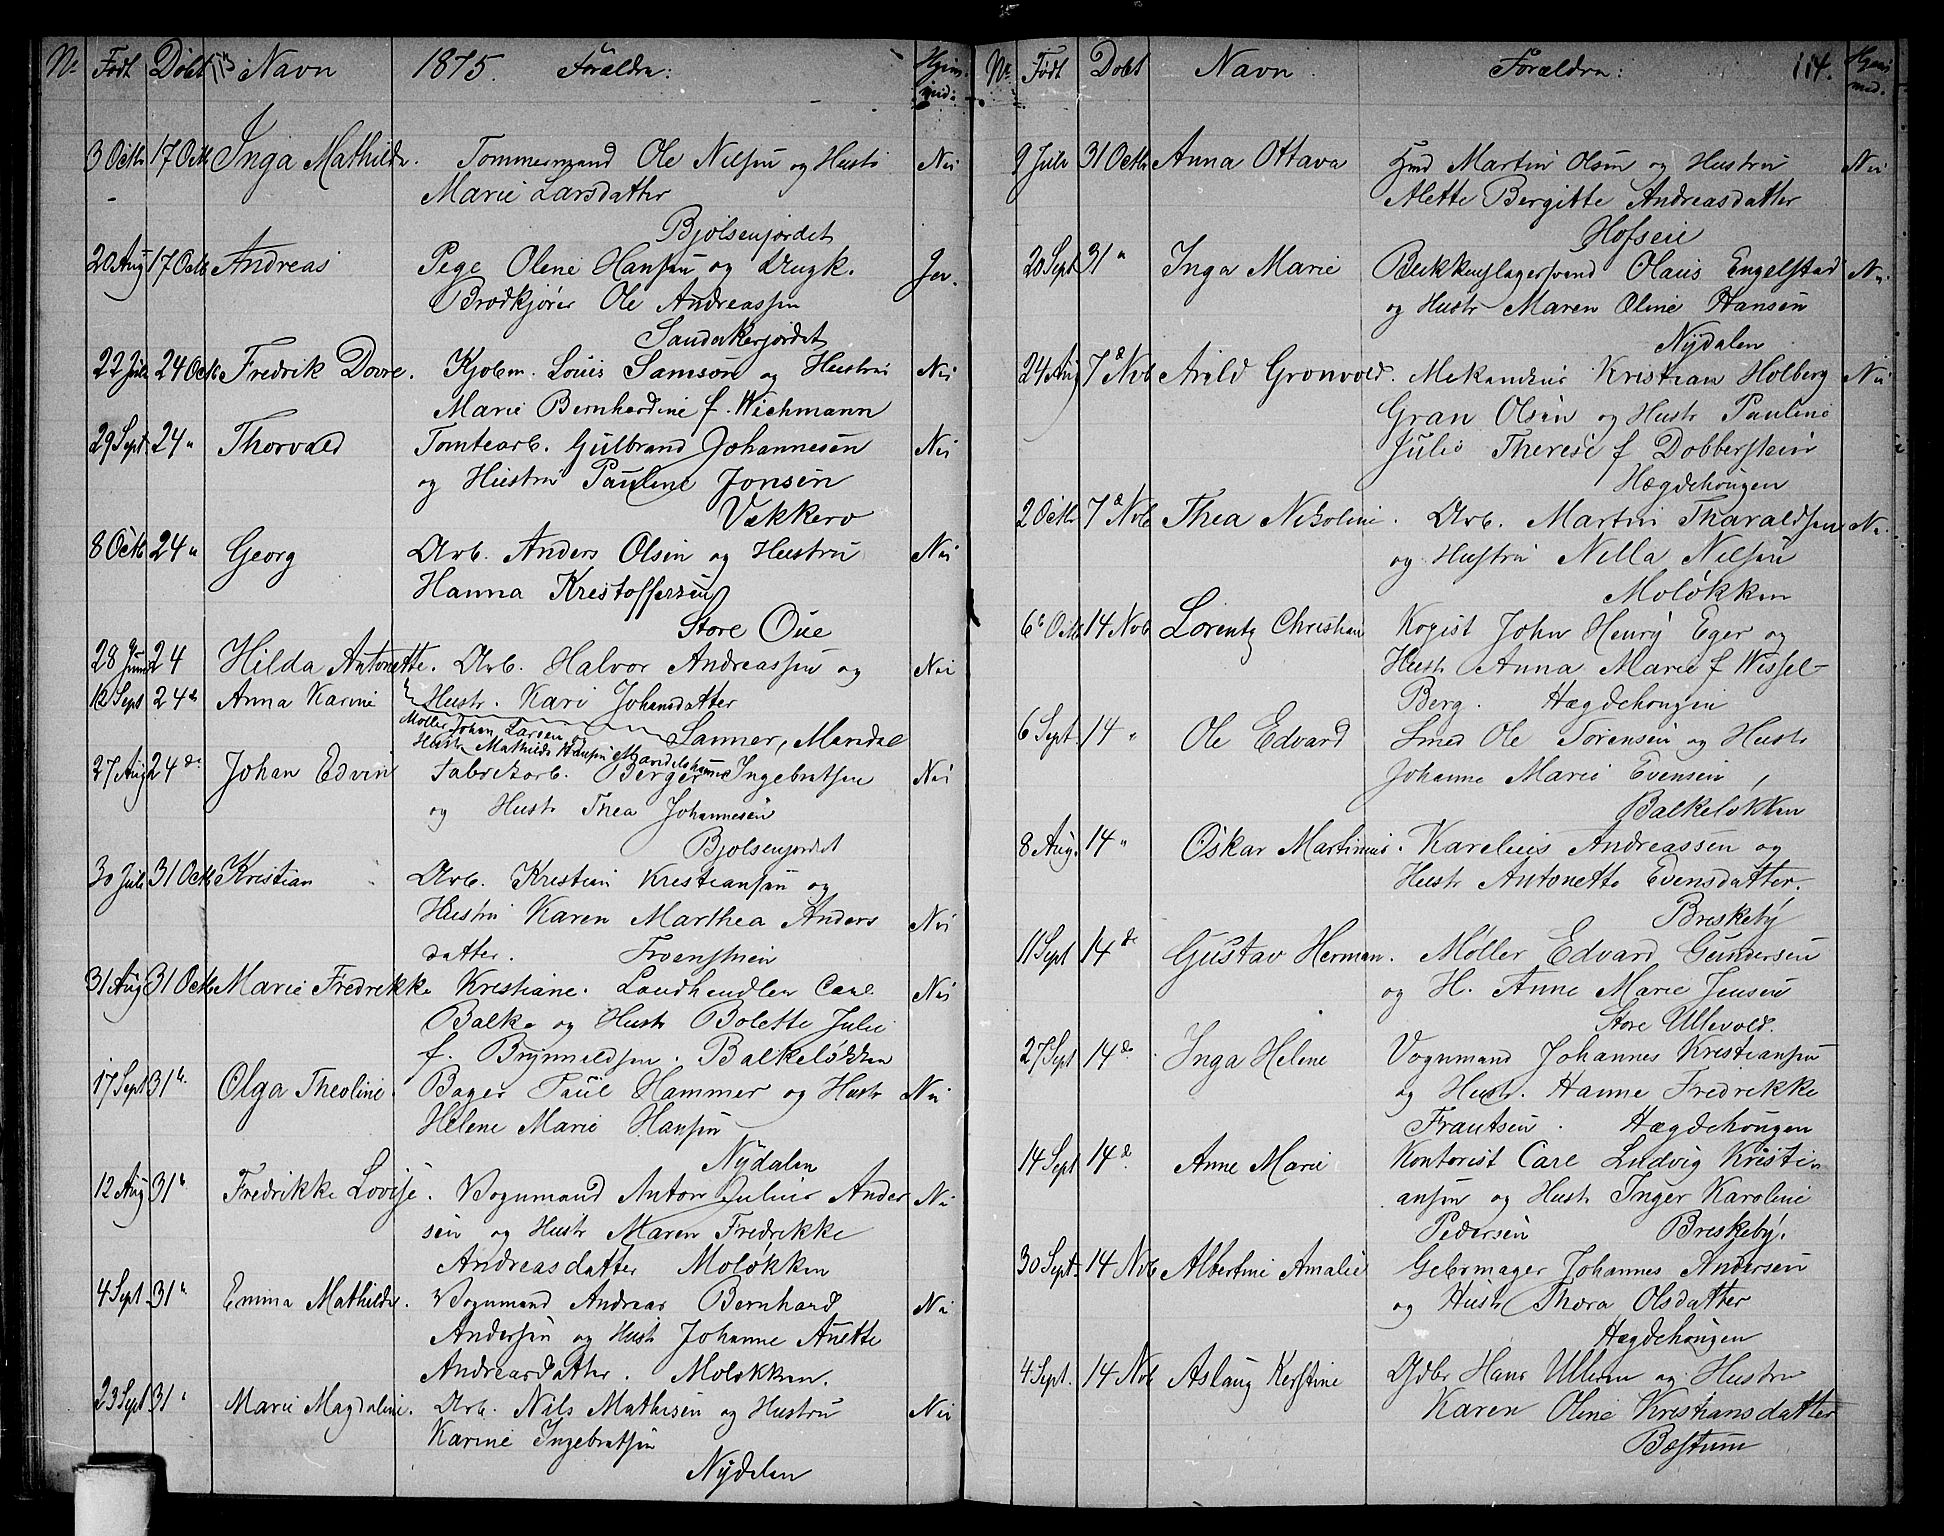 Nr. Født Døbt 113 Navn 1875. Forældre: Hjem med:
3 Octb 17 Octb Inga Mathilde. Tommermand Ole Nilsen og Hustr Nei
Marie Larsdatter
Bjølsenjordet
20 Aug 17 Octb Andreas Pege Oline Hansen og Ungk. Ja.
Brødkjører Ole Andreassen
Sandakerjordet
22 Juli 24 Octb Fredrik Dovre. Kjøbm. Louis Samson og Hustru Nei
Marie Bernhardine f. Wichmann
29 Sept 24 " Thorvald Tomtearb. Gulbrand Johannesen Nei
og Hustru Pauline Jonsen
Vækkerø
8 Octb. 24 " Georg Arb. Anders Olsen og Hustru Nei
Hanna Kristoffersen
Store Oue
28 Juni 24 Hilda Antonette. Arb. Halvor Andreassen og Nei
12 Sept 24 d. Anna Karine Hustr. Kari Johansdatter
Møller Johan Larsen Sanner, Maridal
Hustr Mathilde Hansen
27 Aug 24 d. Johan Edvin Fabrikarb. Berger Ingebretsen Nei
og Hustr Thea Johannesen
Bjølsenjordet
30 Juli 31 Octb Kristian Arb. Kristian Kristiansen og
Hustru Karen Marthea Anders Nei
datter.
31 Aug 31 Octb Marie Fredrikke Kristiane. Landhandler Carl Nei
Balke og Hustr Bolette Julie
f. Brynneldsen. Balkeløkken
17 Sept 31 " Olga Theoline. Bager Paul Hammer og Hustr Nei
Helene Marie Hansen
Nydalen
12 Aug 31 " Fredrikke Lovise. Vognmand Anton Julius Ander Nei
sen og Hustr Maren Fredrikke
Andreasdatter Moløkken
4 Sept. 31 " Emma Mathilde. Vognmand Andreas Bernhard Nei
Andersen og Hustr Johanne Anette
Andreasdatter. Moløkken.
23 Sept 31 " Marie Magdaline. Arb. Nils Mathisen og Hustru Nei
Karine Ingebretsen
Nydalen
Nr. Født Døbt Navn. Forældre: 114. Hjem med.
9 Juli 31 Octb Anna Ottava Hmd Martin Olsen og Hustru Nei
Alette Bergitte Andreasdatter
Hofseie
20 Sept 31 " Inga Marie Bækkenslagersvend Olaus Engelstad Nei
og Hustr Maren Oline Hansen
Nydalen
24 Aug 7d Novb Arild Grønvold. Mekandens Kristian Holberg Nei
Gran Olsen og Hustr Pauline
Julie Therese f Dobberstein
Hægdehougen
2 Octb 7d Novb Thea Nikoline. Arb. Martin Tharaldsen Nei
og Hustru Nilla Nilsen
Moløkken
6 Octb 14 Novb Lorentz Christian Kopist John Henry Eger og
Hustr Anna Marie f Wissel-
Berg. Hægdehougen
6 Sept. 14 " Ole Edvard Smed Ole Torensen og Hustr
Johanne Marie Evensen,
Balkeløkken
8 Aug. 14 " Oskar Martinius. Karelius Andreassen og
Hustr Antonette Evensdatter.
Breskeby
11 Sept 14 d. Gustav Herman. Møller Edvard Gundersen
og H. Anne Marie Jensen
Store Ullevold.
27 Sept 14 d. Inga Helene Vognmand Johannes Kristiansen
og Hustr. Hanne Fredrikke
Frantsen. Hægdehougen
14 Sept 14 d. Anne Marie Kontorist Carl Ludvig Kristi
ansen og Hustr Inger Karoline
Pedersen Breskeby.
30 Sept. 14 Novb Albertine Amalie Gelbmager Johannes Andersen
og Hustr Thora Olsdatter
Hægdehougen
4 Sept. 14 Novb Aslaug Kerstine Gdbr Hans Ullern og Hustru
Karen Oline Kristiansdatter
Bæstum